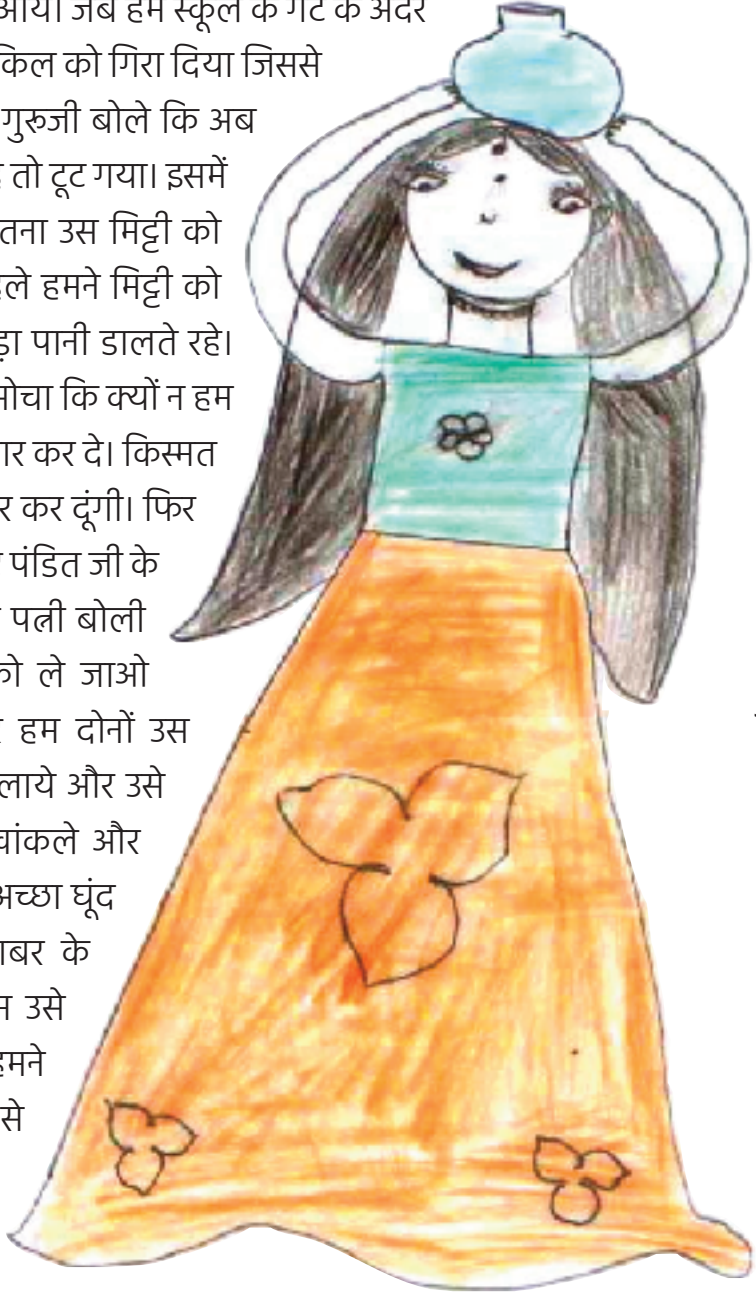 आया जब हम स्कूल के गेट के अंदर
किल को गिरा दिया जिससे
गुरूजी बोले कि अब
तो टूट गया। इसमें
तना उस मिट्टी को
हले हमने मिट्टी को
ड़ा पानी डालते रहे।
सोचा कि क्यों न हम
ार कर दे। किस्मत
र कर दूंगी। फिर
पंडित जी के
पत्नी बोली
को ले जाओ
हम दोनों उस
लाये और उसे
चांकले और
अच्छा घूंद
ाबर के
उसे
हमने
से